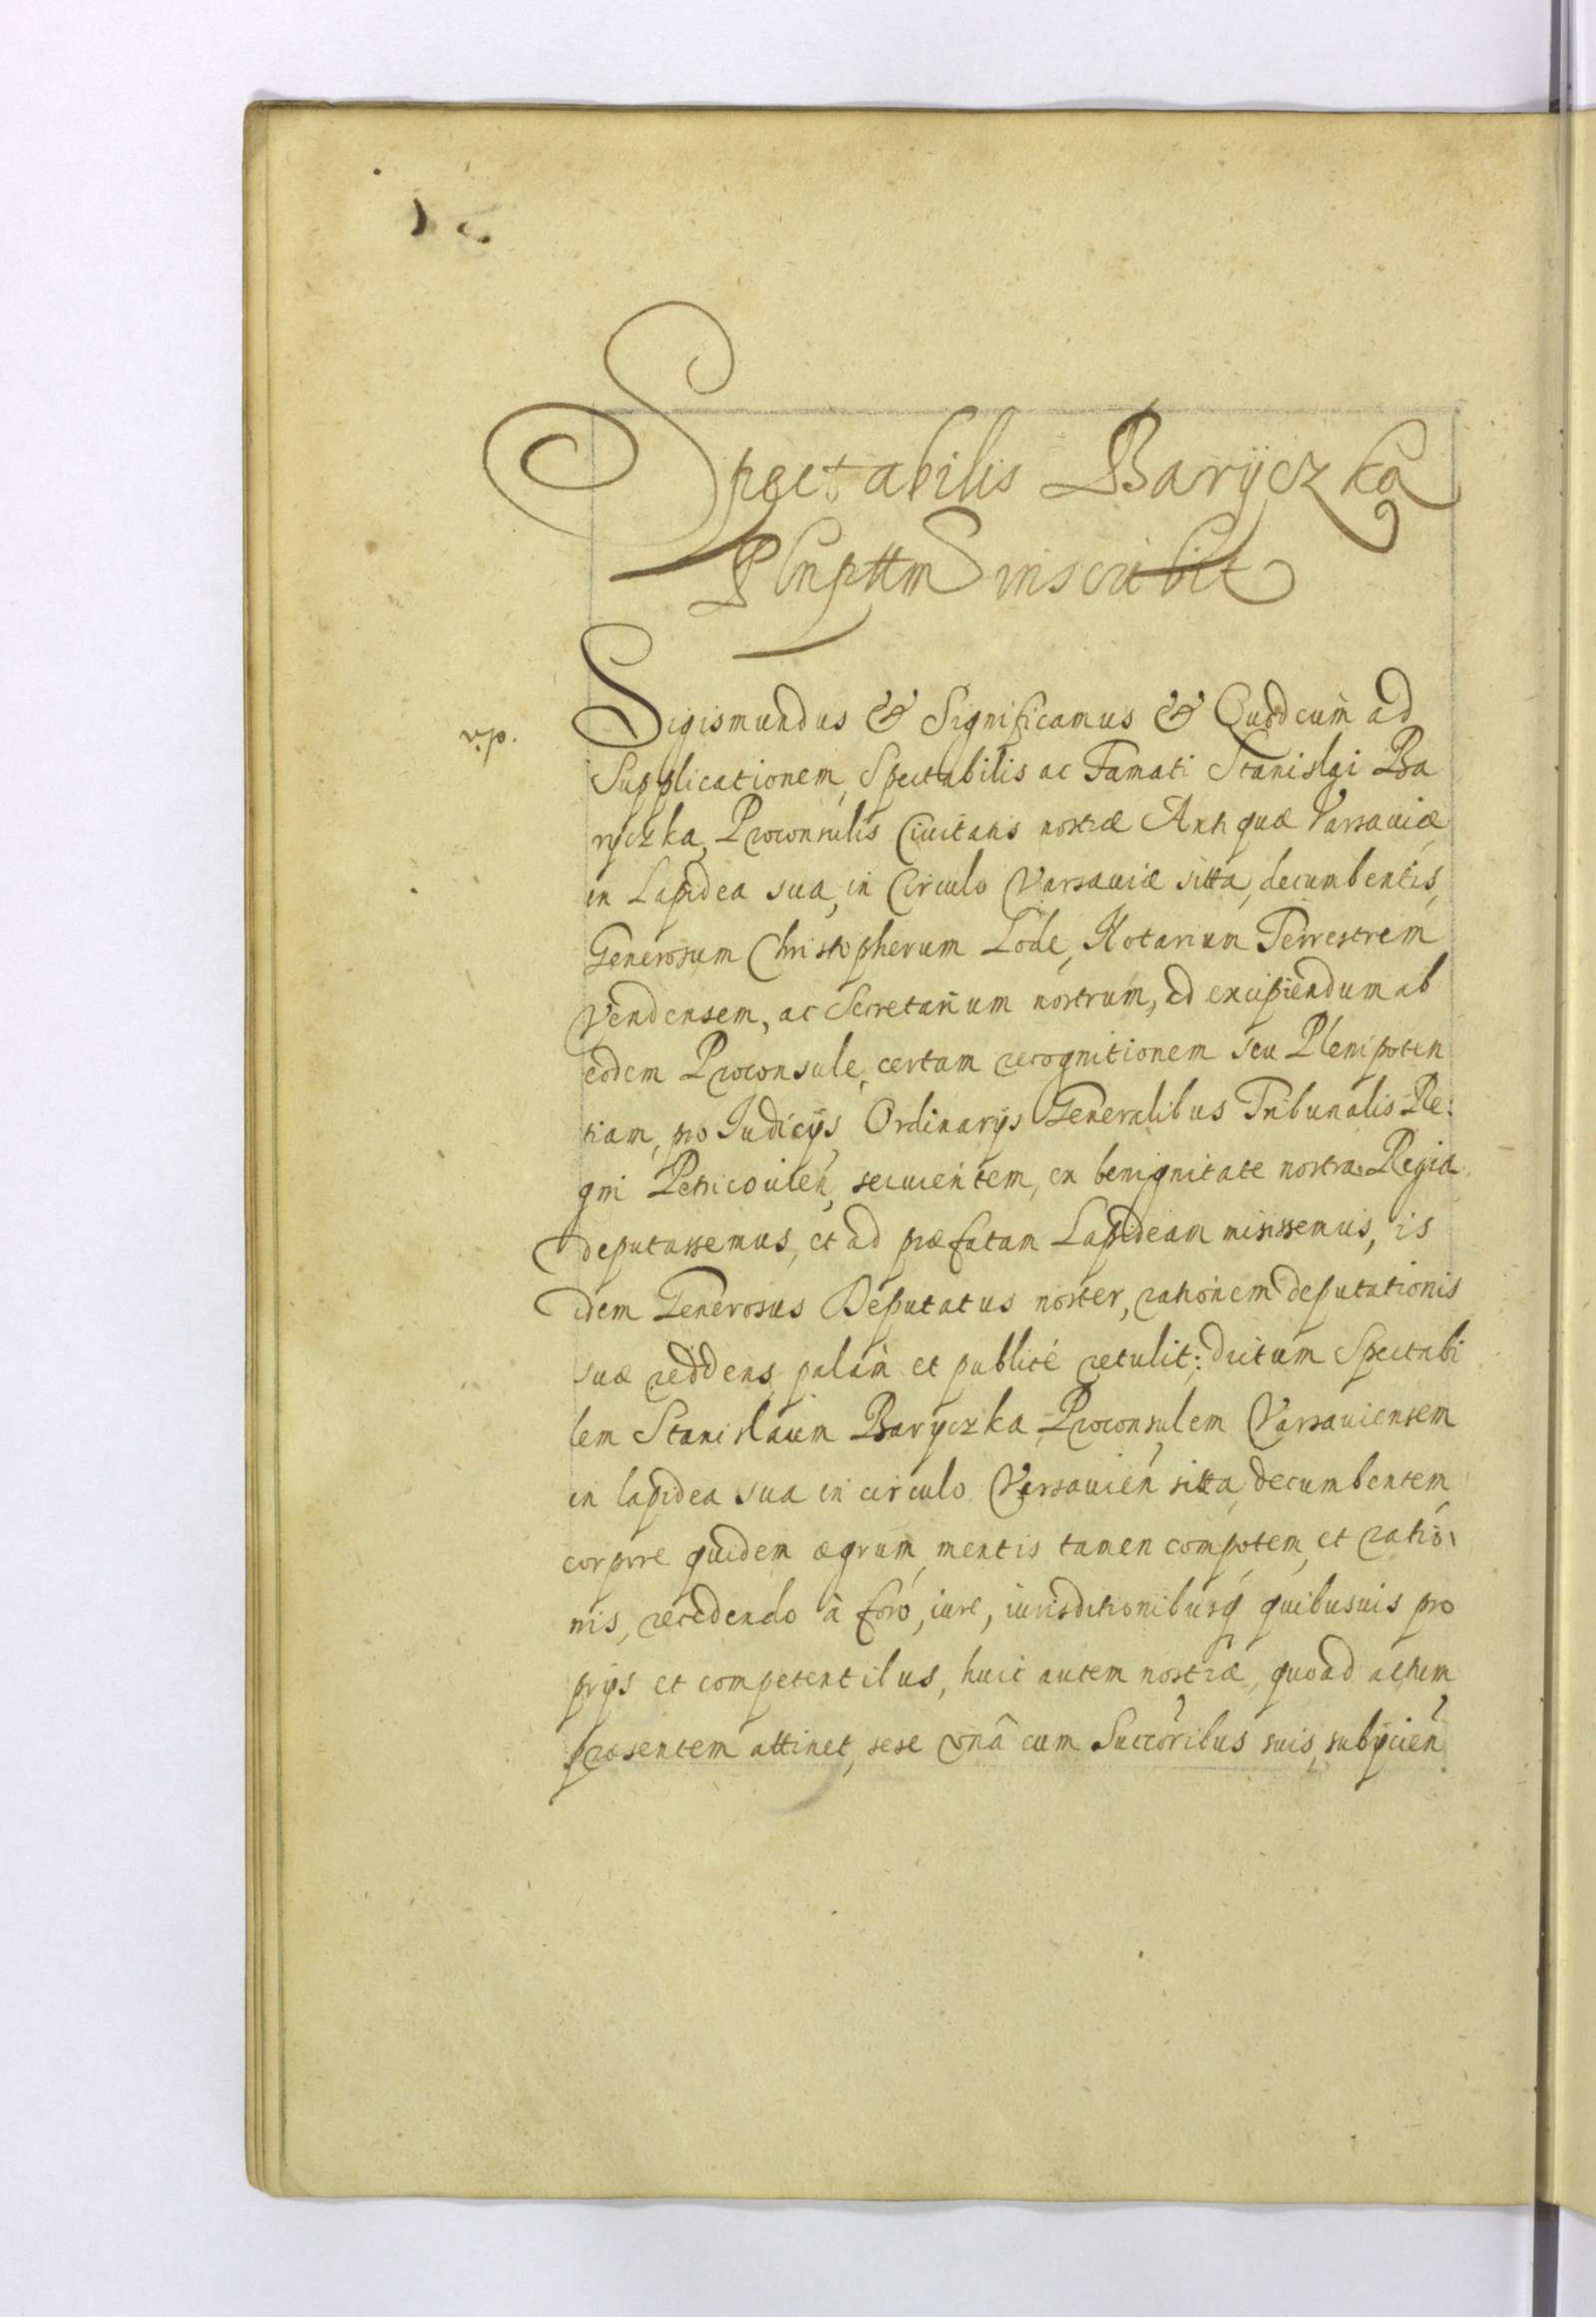 Spectabilis Baryczka
Plnpttm inscribit
v.p.
Sigismundus & Significamus & Quod cùm ad
Supplicationem, Spectabilis ac Famati Stanislai Ba
ryczka, Proconsulis Ciuitatis nostræ Antiquæ Varsauiæ
in Lapidea sua, in Circulo Varsauiæ sitta, decumbentis,
Generosum Christopherum Lode, Notarium Terrestrem
Vendensem, ac Secretarium nostrum, ad excipiendum ab
eodem Proconsule, certam recognitionem seu Plenipoten
tiam, pro Iudicijs Ordinarijs Generalibus Tribunalis Re:
gni Petricouien, seruientem, ex benignitate nostra Regia
deputassemus, et ad præfatam Lapideam misissemus, is
idem Generosus Deputatus noster, rationem deputationis
suæ reddens, palàm et publicè retulit: dictum Spectabi
lem Stanislaum Baryczka, Proconsulem Varsauiensem
in lapidea sua in circulo Varsauien sitta, decumbentem,
corpore quidem ægrum, mentis tamen compotem, et ratio
nis, recedendo à foro, iure, iurisdictionibusq quibusuis pro
prijs et competentibus, huic autem nostræ, quoad actum
præsentem attinet, sese vnâ cum Succoribus suis, subijcien